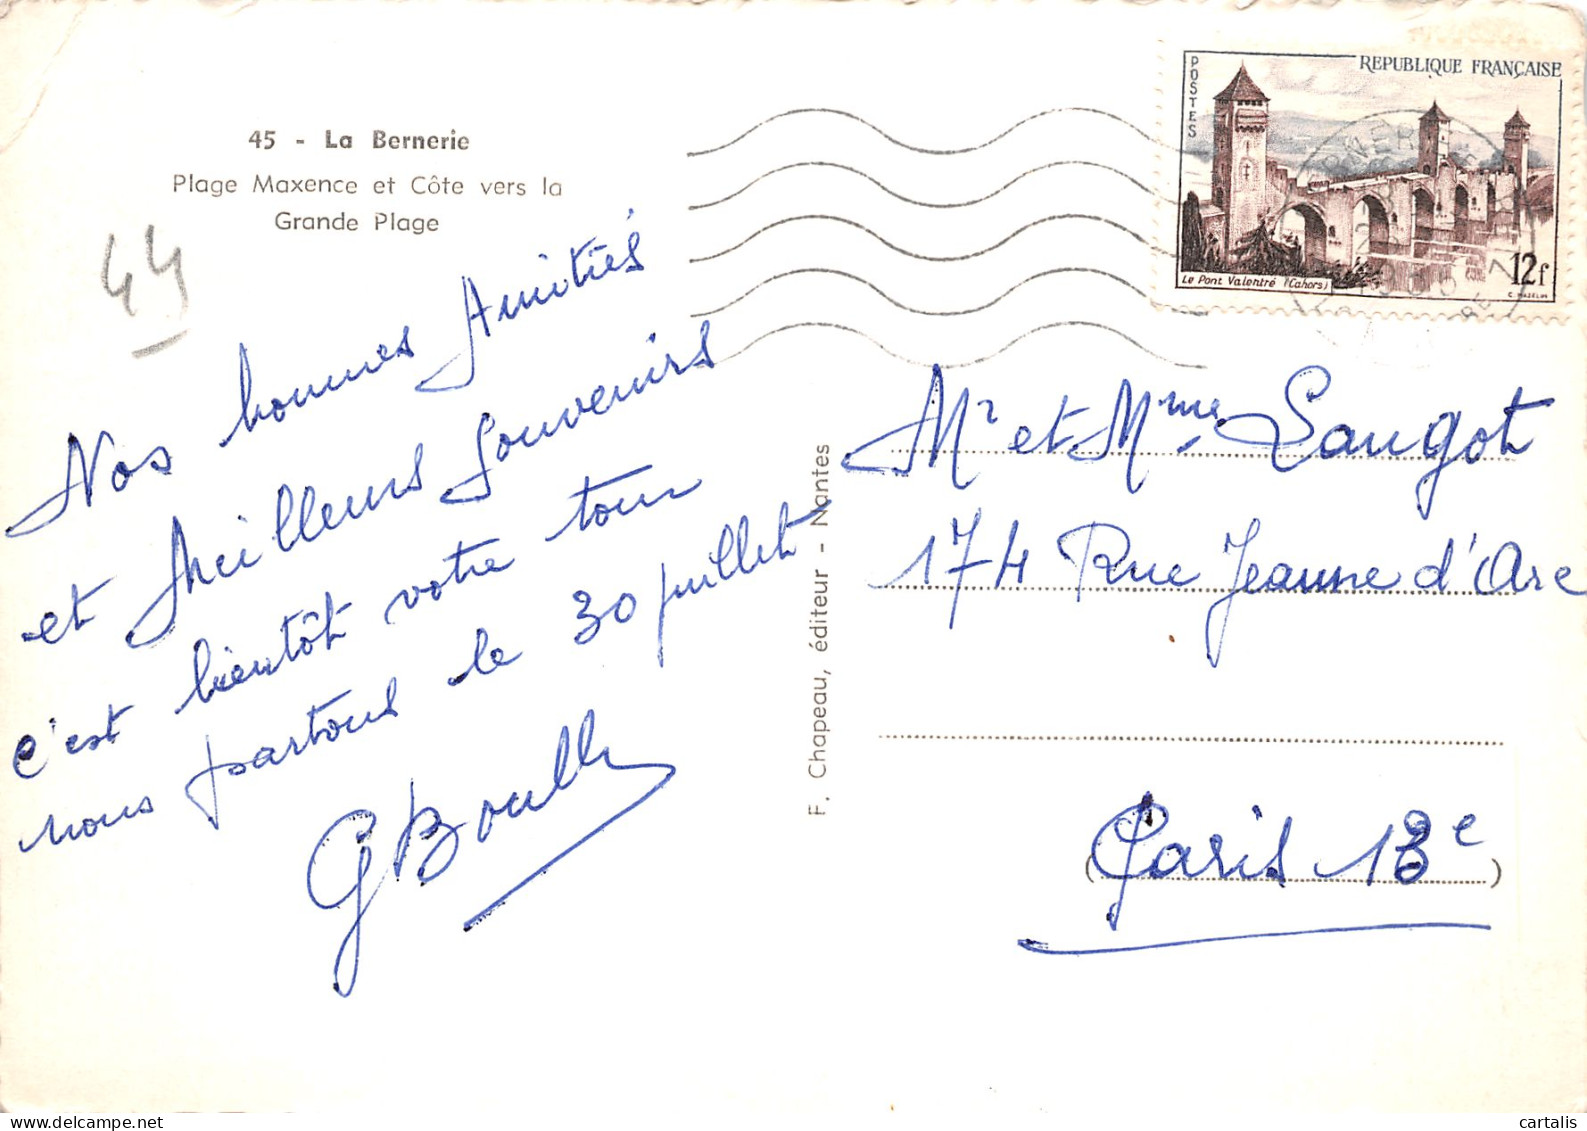 45 - La Bernerie
Plage Maxence et Côte vers la
Grande Plage
44
Nos bonnes Amitiés
et Meilleurs Souvenirs
c'est bientôt votre tour
nous partons le 30 juillet
F. Chapeau, éditeur - Nantes
POSTES
REPUBLIQUE FRANÇAISE
Le Pont Valentré (Cahors)
12f
C. MAZELIN
Mr et Mme Langot
174 Rue Jeanne d'Arc
(Paris 13e)
cartalis